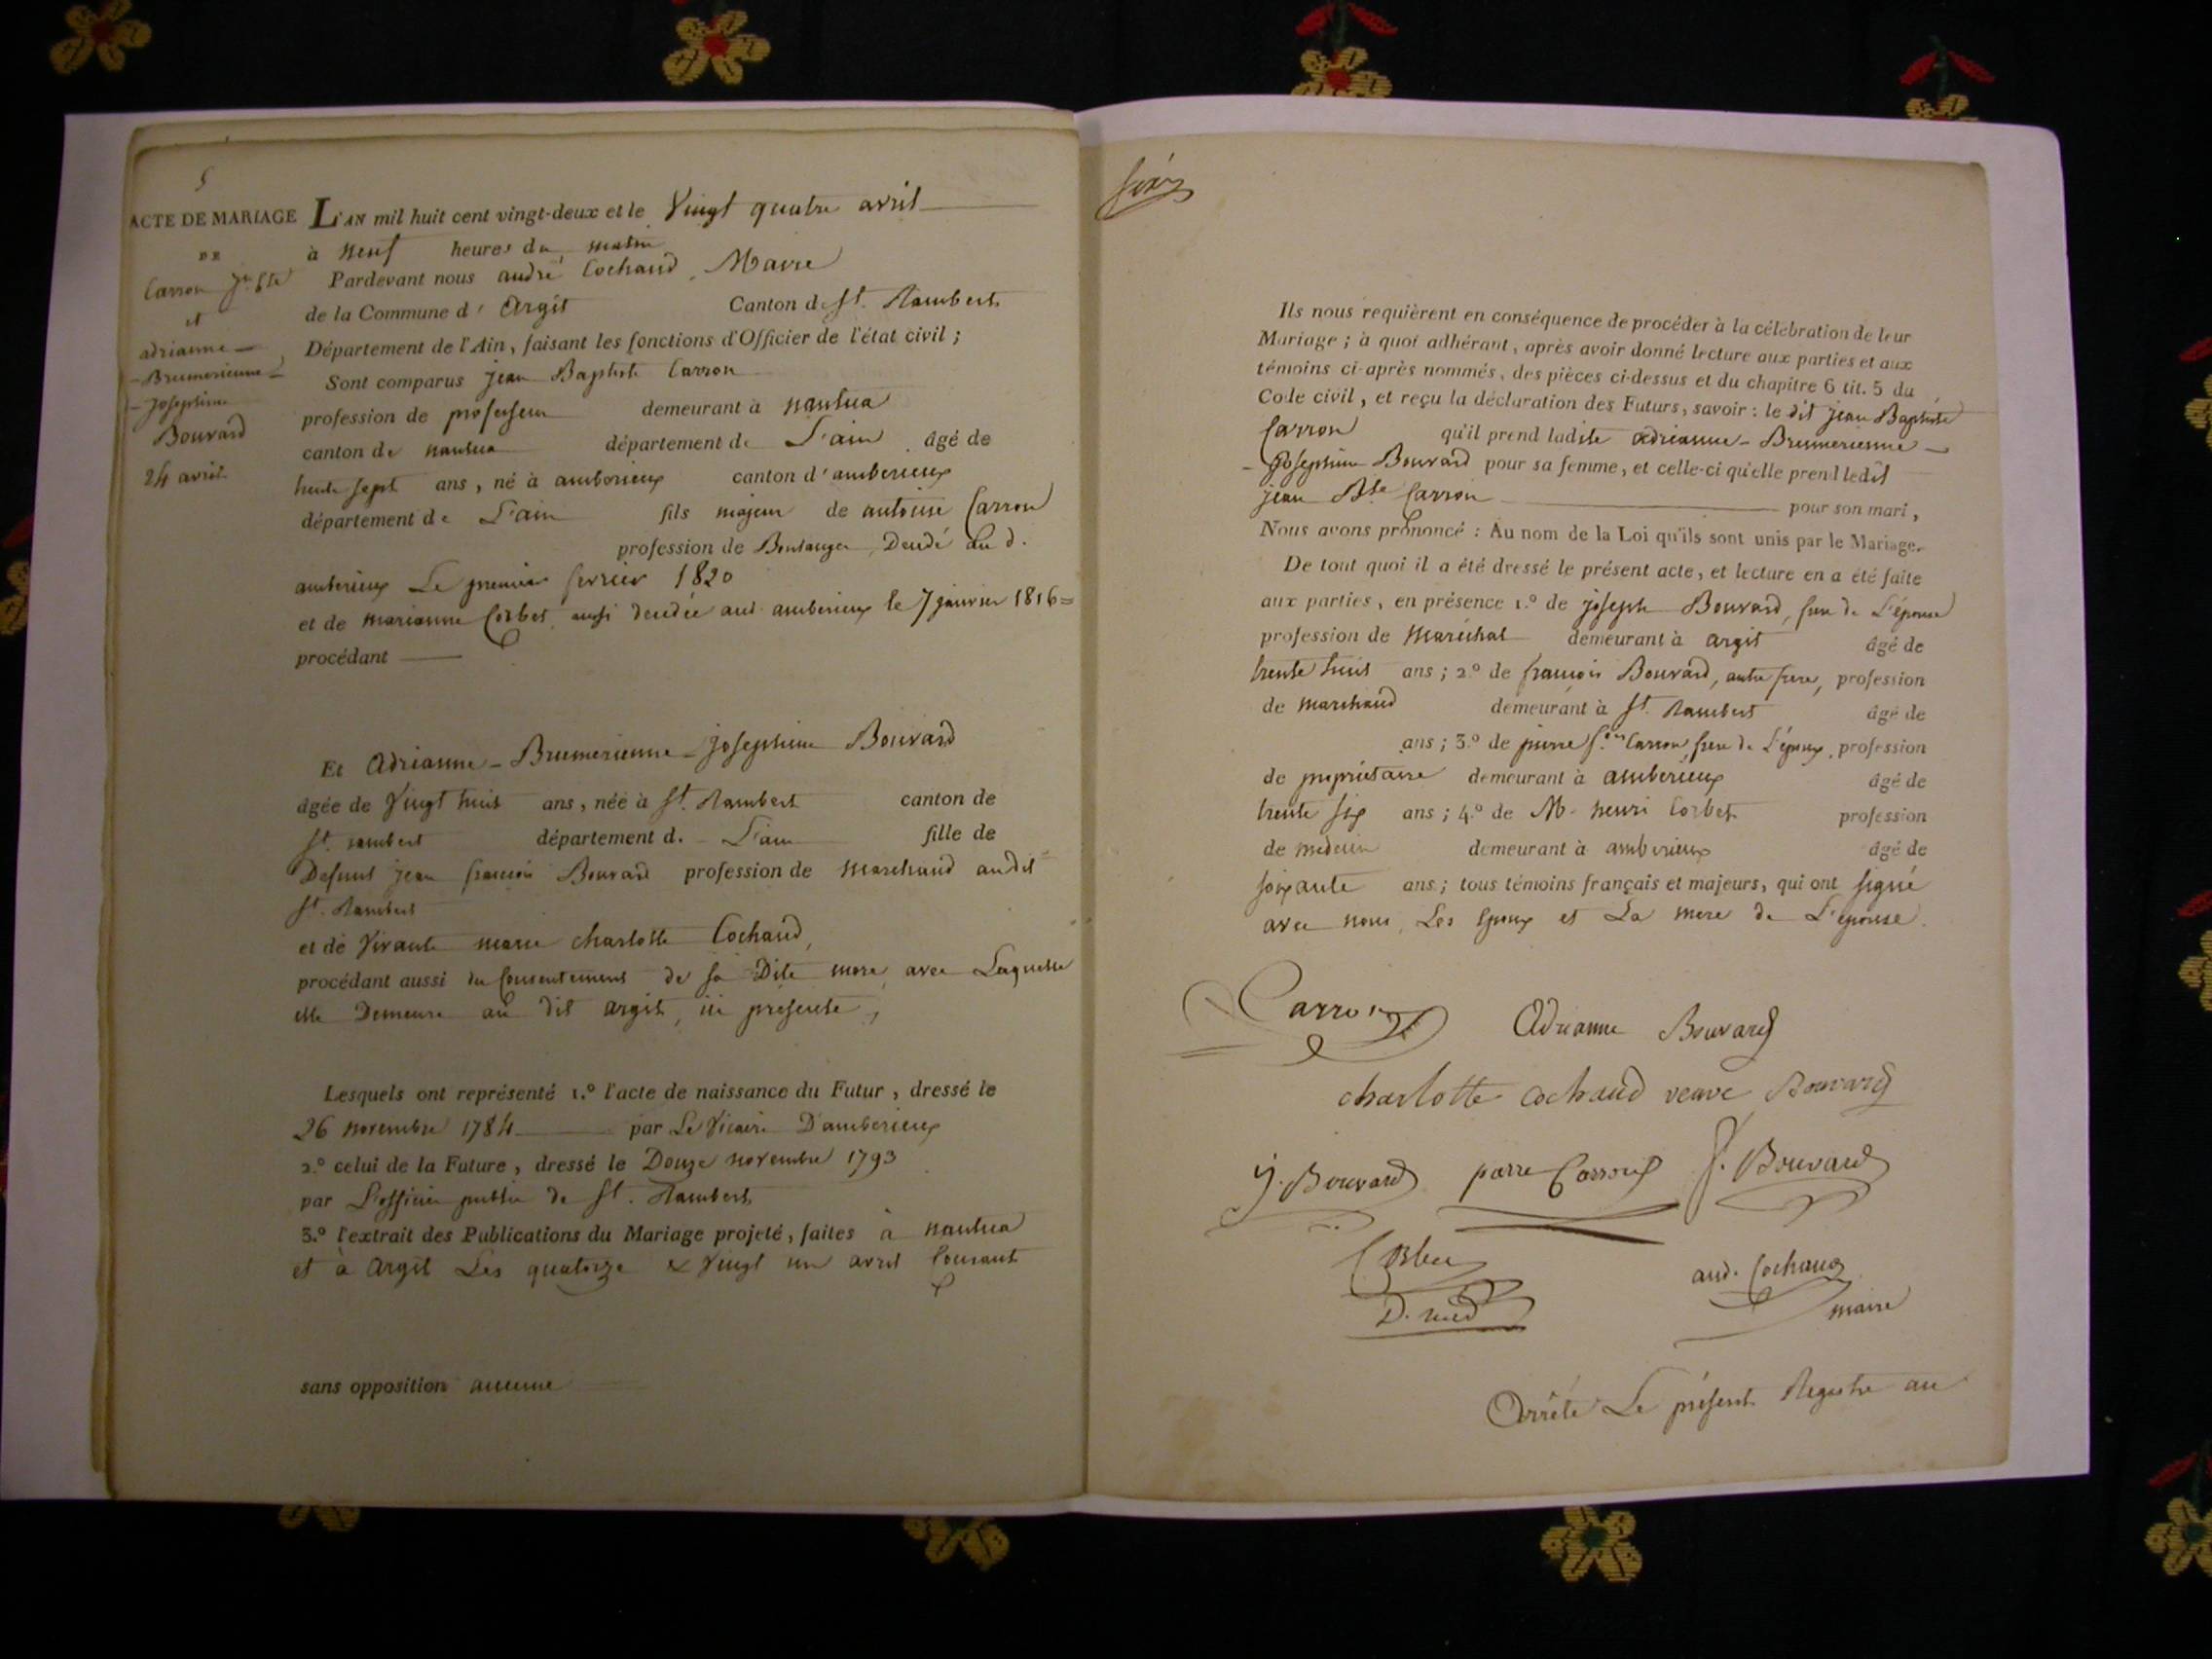 5
ACTE DE MARIAGE
DE
Carron Jn Bte
et
adrianne —
- Brumerienne -
- Josephine
Bouvard
24 avril
L'AN mil huit cent vingt-deux et le Vingt quatre avril
à neuf heures du matin
Pardevant nous andré Cochaud, Maire
de la Commune d' Argit Canton de St. Rambert
Département de l'Ain, faisant les fonctions d'Officier de l'état civil ;
Sont comparus jean Baptiste Carron
profession de professeur demeurant à nantua
canton de nantua département de L'ain âgé de
trente sept ans, né à amberieux canton d'amberieux
département de L'ain fils majeur de antoine Carron
profession de Boulanger, Decédé au d.
amberieux Le premier fevrier 1820
et de marianne Corbet, aussi decédée aud. amberieux le 7 janvier 1816 =
procédant —
Et Adrianne - Brumerienne - Josephine Bouvard
âgée de Vingt huit ans, née à St. Rambert canton de
St. rambert département d. L'ain fille de
Defunt jean françois Bouvard profession de marchand audit
St. Rambert
et de Vivante marie charlotte Cochaud,
procédant aussi du Consentement de sa Dite mere, avec Laquelle
elle Demeure au dit argit, ici présente,
Lesquels ont représenté 1.º l'acte de naissance du Futur, dressé le
26 novembre 1784 par Le Vicaire D'amberieux
2.º celui de la Future, dressé le Douze novembre 1793
par L'officier public de St. Rambert
3.º l'extrait des Publications du Mariage projeté, faites à nantua
et à Argit Les quatorze & Vingt un avril Courant
sans opposition aucune
Ils nous requièrent en conséquence de procéder à la célébration de leur
Mariage ; à quoi adhérant, après avoir donné lecture aux parties et aux
témoins ci-après nommés, des pièces ci-dessus et du chapitre 6 tit. 5 du
Code civil, et reçu la déclaration des Futurs, savoir : le dit jean Baptiste
Carron qu'il prend ladite adrianne - Brumerienne -
- Josephine Bouvard pour sa femme, et celle-ci qu'elle prend ledit
jean Bte Carron pour son mari,
Nous avons prononcé : Au nom de la Loi qu'ils sont unis par le Mariage.
De tout quoi il a été dressé le présent acte, et lecture en a été faite
aux parties, en présence 1.º de joseph Bouvard, frere de L'épouse
profession de Maréchal demeurant à argit âgé de
trente huit ans ; 2.º de françois Bouvard, autre frere, profession
de marchand demeurant à St. Rambert âgé de
ans ; 3.º de pierre Carron frere de L'époux, profession
de propriétaire demeurant à amberieux âgé de
trente six ans ; 4.º de M. henri Corbet profession
de medecin demeurant à amberieux âgé de
soixante ans ; tous témoins français et majeurs, qui ont signé
avec nous, Les Epoux et La mere de L'épouse.
Carron
Adrianne Bouvard
charlotte cochaud veuve Bouvard
J. Bouvard pierre Carron f. Bouvard
Corbet
D. med
and. Cochaud
maire
Arrêté Le présent Registre au